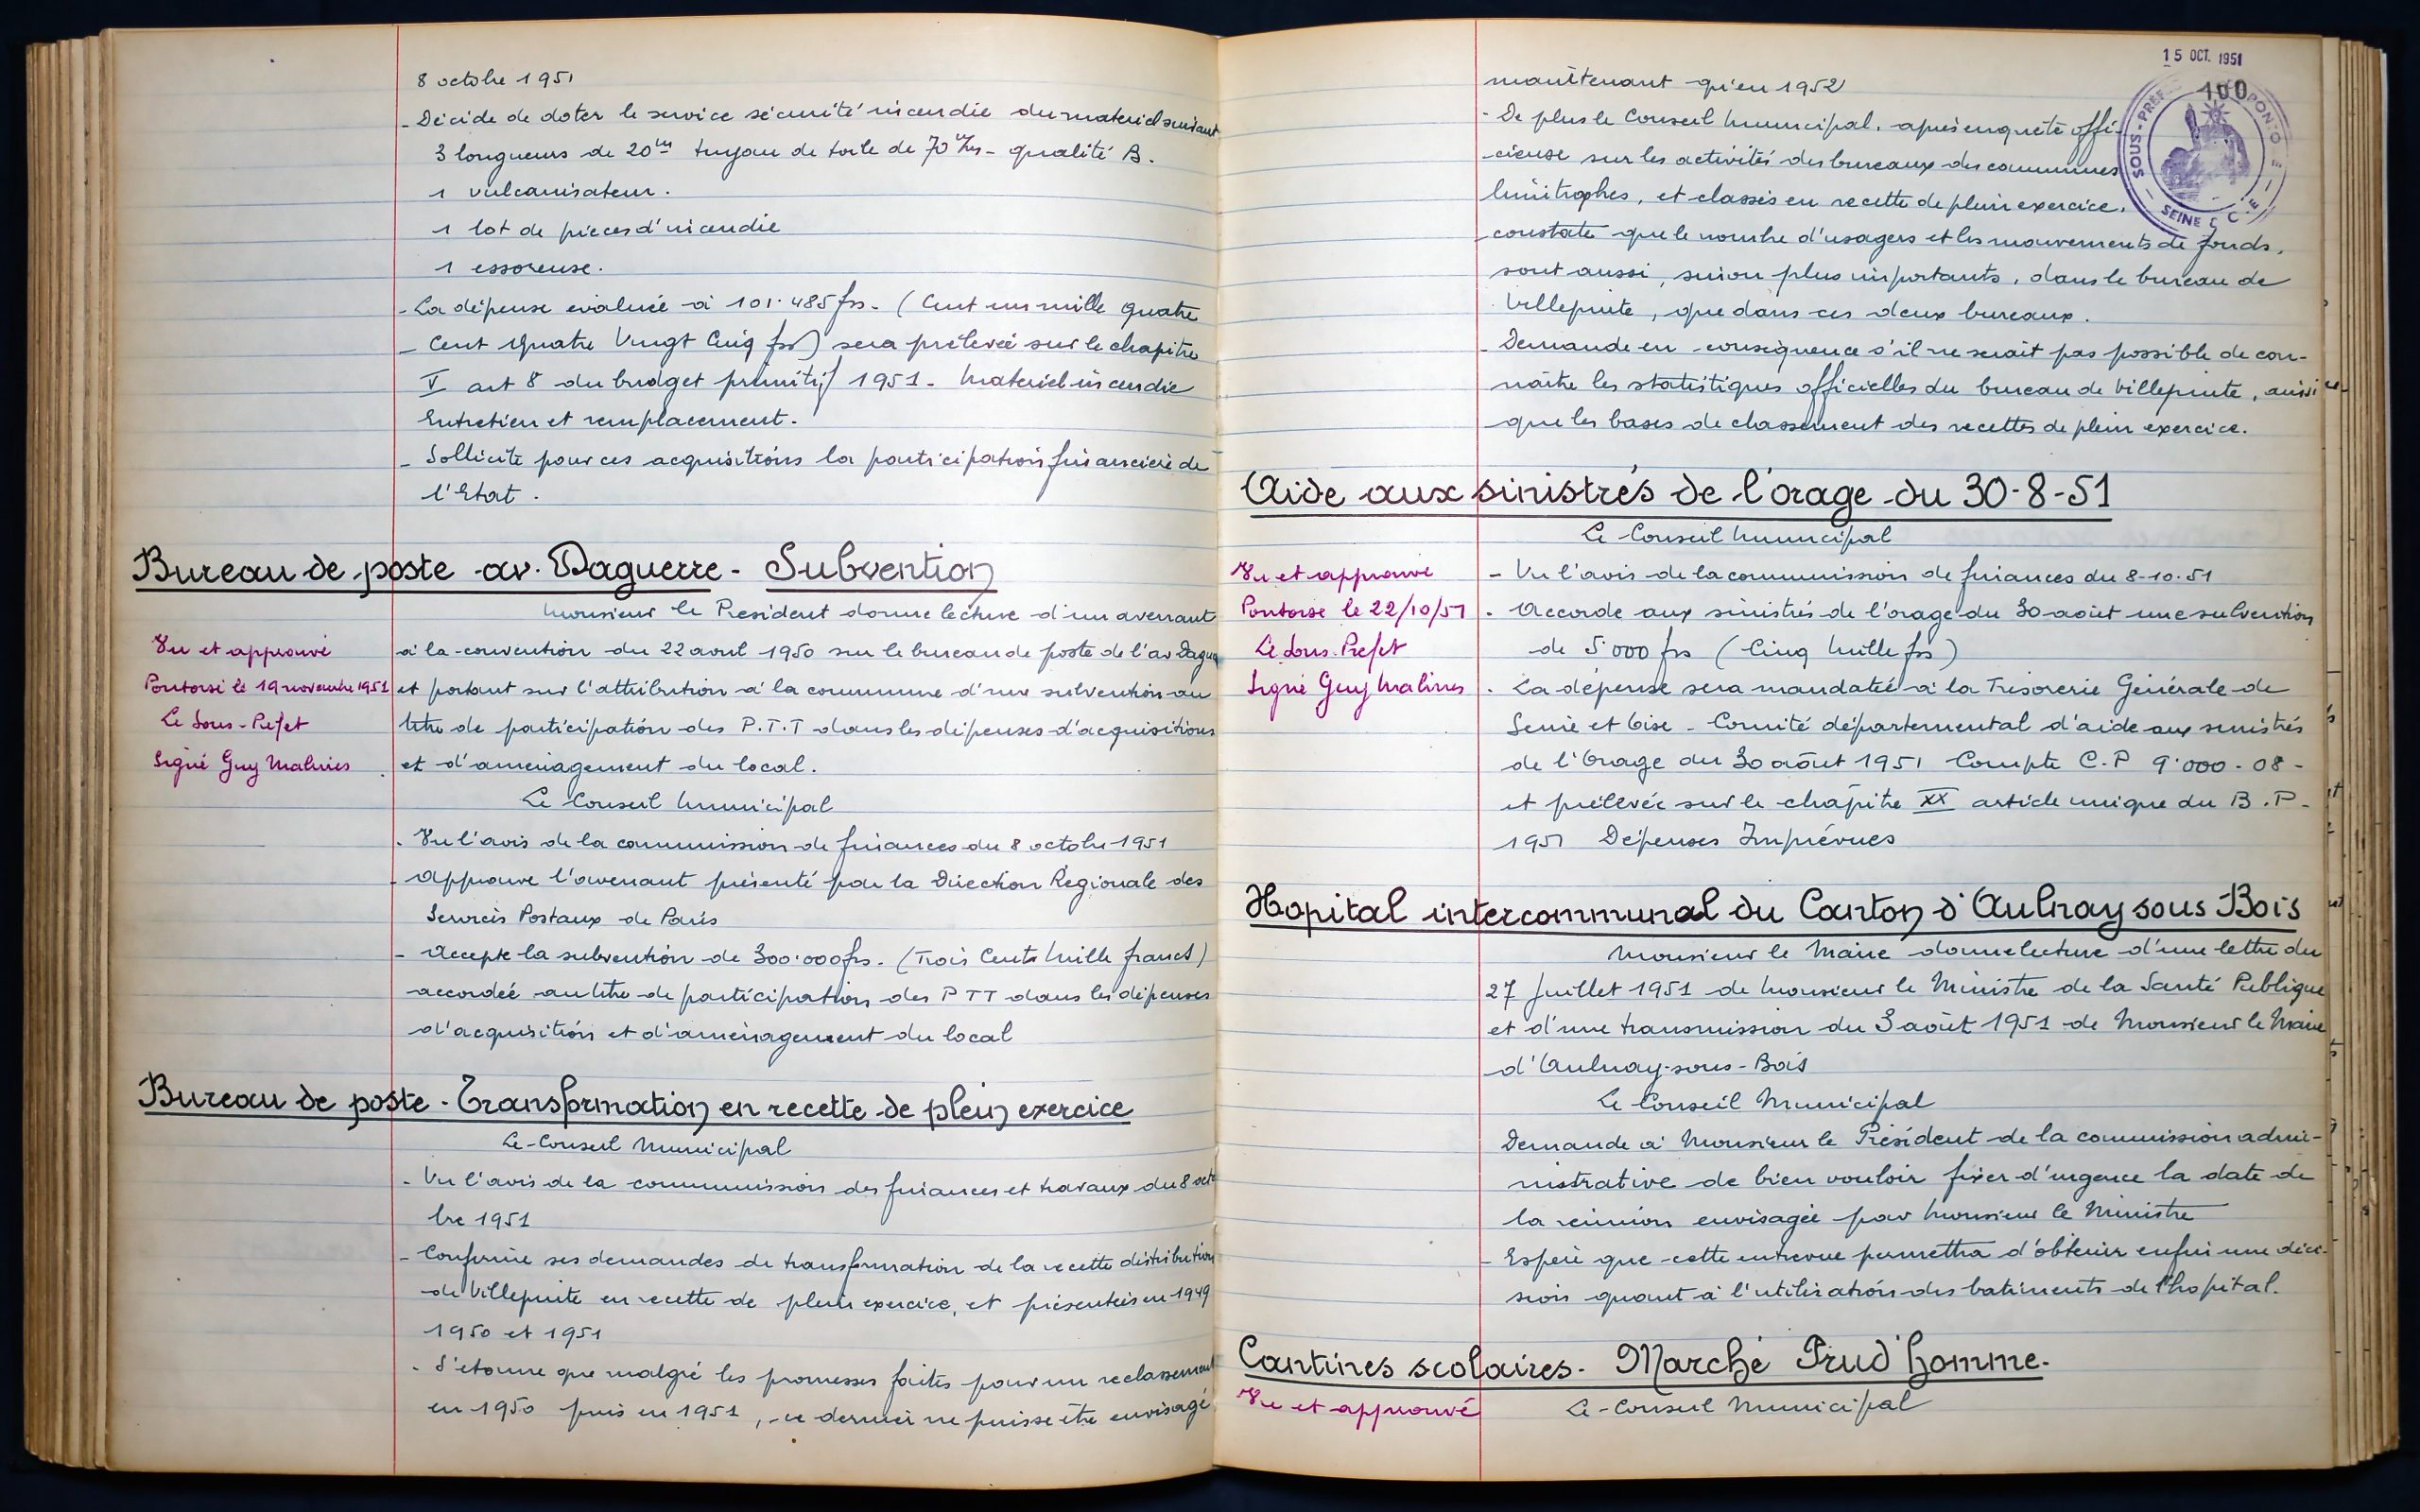 8 octobre 1951
- Décide de doter le service sécurité incendie du materiel suivant
3 longueurs de 20m tuyau de toile de 70 - qualité B.
1 vulcanisateur.
1 lot de pieces d'incendie
1 essoreuse.
- La dépense evaluée à 101.485 frs - (Cent un mille quatre
- Cent Quatre Vingt Cinq frs) sera prélevée sur le chapitre
V art 8 du budget primitif 1951 - Materiel incendie
Entretien et remplacement.
- Sollicite pour ces acquisitions la participation financiere de
l'Etat.
Bureau de poste av. Daguerre - Subvention
Monsieur le President donne lecture d'un avenant
Vu et approuvé
à la convention du 22 avril 1950 sur le bureau de poste de l'av Dague
Pontoise le 19 novembre 1951
et portant sur l'attribution à la commune d'une subvention au
Le Sous-Prefet
titre de participation des P.T.T dans les dépenses d'acquisitions
Signé Guy Malines
et d'amenagement du local.
Le Conseil Municipal
- Vu l'avis de la commission de finances du 8 octobre 1951
- Approuve l'avenant présenté par la Direction Regionale des
Services Postaux de Paris
- Accepte la subvention de 300.000 frs. (Trois Cents Mille francs)
accordée au titre de participation des P T T dans les dépenses
d'acquisition et d'aménagement du local
Bureau de poste - Transformation en recette de plein exercice
Le Conseil Municipal
- Vu l'avis de la commission des finances et travaux du 8 octo
bre 1951
- Confirme ses demandes de transformation de la recette distribution
de Villepinte en recette de plein exercice, et présentées en 1949
1950 et 1951
- S'etonne que malgré les promesses faites pour un reclassement
en 1950 puis en 1951, ce dernier ne puisse être envisagé
15 OCT. 1951
100
SOUS-PREF PONTO E
SEINE
maintenant qu'en 1952
- De plus le Conseil Municipal, après enquête offi-
-cieuse sur les activités des bureaux des communes
limitrophes, et classés en recette de plein exercice,
constate que le nombre d'usagers et les mouvements de fonds,
sont aussi, sinon plus importants, dans le bureau de
Villepinte, que dans ces deux bureaux.
- Demande en conséquence s'il ne serait pas possible de con-
naître les statistiques officielles du bureau de Villepinte, ainsi
que les bases de classement des recettes de plein exercice.
Aide aux sinistrés de l'orage du 30-8-51
Le Conseil Municipal
Vu et approuvé
- Vu l'avis de la commission de finances du 8-10-51
Pontoise le 22/10/51
- Accorde aux sinistrés de l'orage du 30 août une subvention
Le Sous-Prefet
de 5.000 frs (Cinq Mille frs)
Signé Guy Malines
- La dépense sera mandatée à la Tresorerie Générale de
Seine et Oise - Comité départemental d'aide aux sinistrés
de l'Orage du 30 août 1951 Compte C.P 9.000-08-
et prélevée sur le chapitre XX article unique du B.P.
1951 Dépenses Imprévues
Hopital intercommunal du Canton d'Aulnay sous Bois
Monsieur le Maire donne lecture d'une lettre du
27 Juillet 1951 de Monsieur le Ministre de la Santé Publique
et d'une transmission du 3 août 1951 de Monsieur le Maire
d'Aulnay-sous-Bois
Le Conseil Municipal
Demande à Monsieur le Président de la commission admi-
nistrative de bien vouloir fixer d'urgence la date de
la réunion envisagée par Monsieur le Ministre
- Espère que cette entrevue permettra d'obtenir enfin une déci-
sion quant à l'utilisation des batiments de l'hopital.
Cantines scolaires - Marché Prud'homme.
Vu et approuvé
Le Conseil Municipal